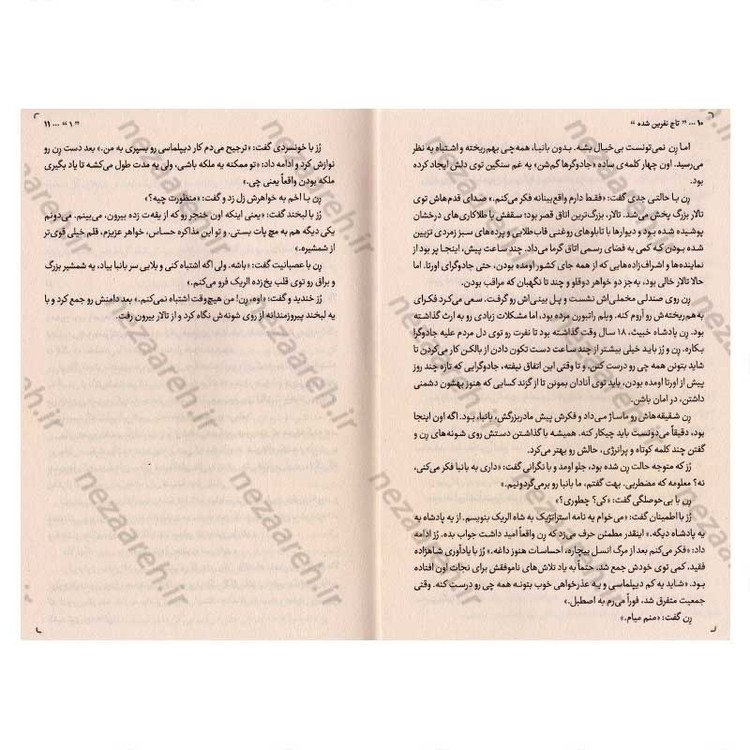 ۱۰ ... " تاج نفرین شده "
اما رن نمی‌تونست بی‌خیال بشه. بدون بانبا، همه‌چی بهم‌ریخته و اشتباه به نظر
می‌رسید. اون چهار کلمه‌ی ساده «جادوگرها گم‌شن» یه غم سنگین توی دلش ایجاد کرده
بود.
رن با حالتی جدی گفت: «فقط دارم واقع‌بینانه فکر می‌کنم.» صدای قدم‌هاش توی
تالار بزرگ پخش می‌شد. تالار، بزرگ‌ترین اتاق قصر بود؛ سقفش با طلاکاری‌های درخشان
پوشیده شده بود و دیوارها با تابلوهای روغنی قاب‌طلایی و پرده‌های سبز زمردی تزیین
شده بودن که کمی به فضای رسمی اتاق گرما می‌داد. چند ساعت پیش، اینجا پر بود از
نماینده‌ها و اشراف‌زاده‌هایی که از همه جای کشور اومده بودن، حتی جادوگرای اورتا. اما
حالا تالار خالی بود، به‌جز دو خواهر دوقلو و چند تا نگهبان که مراقب بودن.
رن روی صندلی مخملی‌اش نشست و پل بینی‌اش رو گرفت. سعی می‌کرد فکرای
به‌هم‌ریخته‌ش رو آروم کنه. ویلم راتبورن مرده بود، اما مشکلات زیادی رو به ارث گذاشته
بود. رن پادشاه خبیث، ۱۸ سال وقت گذاشته بود تا نفرت رو توی دل مردم علیه جادوگرا
بکاره. رن و رُز باید خیلی بیشتر از چند ساعت دست تکون دادن از بالکن کار می‌کردن تا
شاید بتونن همه چی رو درست کنن. و تا وقتی این اتفاق نیفته، جادوگرایی که تازه چند روز
پیش از اورتا اومده بودن، باید توی آنادان بمونن تا از گزند کسایی که هنوز بهشون دشمنی
داشتن، در امان باشن.
رن شقیقه‌هاش رو ماساژ می‌داد و فکرش پیش مادربزرگش، بانبا، بود. اگه اون اینجا
بود، دقیقاً می‌دونست باید چیکار کنه. همیشه با گذاشتن دستش روی شونه‌های رن و
گفتن چند کلمه کوتاه و پرانرژی، حالش رو بهتر می‌کرد.
رُز که متوجه حالت رن شده بود، جلو اومد و با نگرانی گفت: «داری به بانبا فکر می‌کنی،
نه؟ معلومه که مضطربی. بهت گفتم، ما بانبا رو برمی‌گردونیم.»
رن با بی‌حوصلگی گفت: «کی؟ چطوری؟»
رُز با اطمینان گفت: «می‌خوام یه نامه استراتژیک به شاه الریک بنویسم. از یه پادشاه به
یه پادشاه دیگه.» اینقدر مطمئن حرف می‌زد که رن واقعاً امیدوار شد جواب بده. رُز ادامه
داد: «فکر می‌کنم بعد از مرگ انسل بیچاره، احساسات هنوز داغه.» رُز با یادآوری شاهزاده
فقید، کمی توی خودش جمع شد، حتماً به یاد تلاش‌های ناموفقش برای نجات اون افتاده
بود. «شاید یه کم دیپلماسی و یه عذرخواهی خوب بتونه همه چی رو درست کنه. وقتی
جمعیت متفرق شد، فوراً می‌رم به اصطبل.»
رن گفت: «منم میام.»
" ۱ " ... ۱۱
رُز با خونسردی گفت: «ترجیح می‌دم کار دیپلماسی رو بسپری به من.» بعد دست رن رو
نوازش کرد و ادامه داد: «تو ممکنه یه ملکه باشی، ولی یه مدت طول می‌کشه تا یاد بگیری
ملکه بودن واقعاً یعنی چی.»
رن با اخم به خواهرش زل زد و گفت: «منظورت چیه؟»
رُز با لبخند گفت: «یعنی اینکه اون خنجر رو که از یقه‌ت زده بیرون، می‌بینم. می‌دونم
یکی دیگه هم به مچ پات بستی. و تو این مذاکره حساس، خواهر عزیزم، قلم خیلی قوی‌تر
از شمشیره.»
رن با عصبانیت گفت: «باشه. ولی اگه اشتباه کنی و بلایی سر بانبا بیاد، یه شمشیر بزرگ
و براق رو توی قلب یخ‌زده الریک فرو می‌کنم.»
رُز خندید و گفت: «اوه، رن! من هیچ‌وقت اشتباه نمی‌کنم.» بعد دامنش رو جمع کرد و با
یه لبخند پیروزمندانه از روی شونه‌ش نگاه کرد و از تالار بیرون رفت.
nezaareh.ir